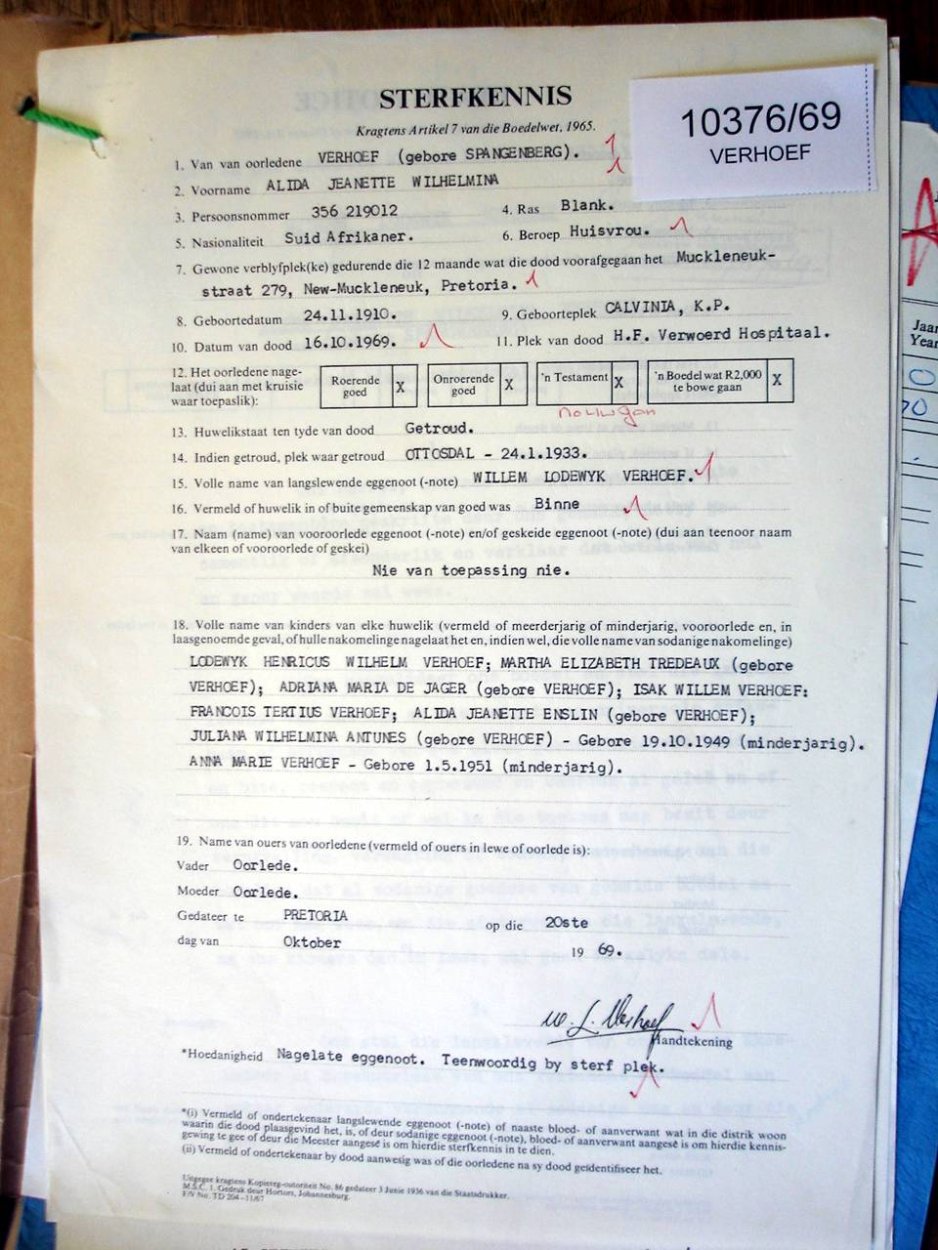 STERFKENNIS
Kragtens Artikel 7 van die Boedelwet, 1965.
10376/69
VERHOEF
1. Van van oorledene VERHOEF (gebore SPANGENBERG).
2. Voorname ALIDA JEANETTE WILHELMINA
3. Persoonsnommer 356 219012 4. Ras Blank.
5. Nasionaliteit Suid Afrikaner. 6. Beroep Huisvrou.
7. Gewone verblyfplek(ke) gedurende die 12 maande wat die dood voorafgegaan het Muckleneuk-
straat 279, New-Muckleneuk, Pretoria.
8. Geboortedatum 24.11.1910. 9. Geboorteplek CALVINIA, K.P.
10. Datum van dood 16.10.1969. 11. Plek van dood H.F. Verwoerd Hospitaal.
12. Het oorledene nage-
laat (dui aan met kruisie
waar toepaslik):
Roerende
goed X
Onroerende
goed X
'n Testament X
'n Boedel wat R2,000
te bowe gaan X
13. Huwelikstaat ten tyde van dood Getroud.
14. Indien getroud, plek waar getroud OTTOSDAL - 24.1.1933.
15. Volle name van langslewende eggenoot (-note) WILLEM LODEWYK VERHOEF.
16. Vermeld of huwelik in of buite gemeenskap van goed was Binne
17. Naam (name) van vooroorlede eggenoot (-note) en/of geskeide eggenoot (-note) (dui aan teenoor naam
van elkeen of vooroorlede of geskei)
Nie van toepassing nie.
18. Volle name van kinders van elke huwelik (vermeld of meerderjarig of minderjarig, vooroorlede en, in
laasgenoemde geval, of hulle nakomelinge nagelaat het en, indien wel, die volle name van sodanige nakomelinge)
LODEWYK HENRICUS WILHELM VERHOEF; MARTHA ELIZABETH TREDEAUX (gebore
VERHOEF); ADRIANA MARIA DE JAGER (gebore VERHOEF); ISAK WILLEM VERHOEF:
FRANCOIS TERTIUS VERHOEF; ALIDA JEANETTE ENSLIN (gebore VERHOEF);
JULIANA WILHELMINA ANTUNES (gebore VERHOEF) - Gebore 19.10.1949 (minderjarig).
ANNA MARIE VERHOEF - Gebore 1.5.1951 (minderjarig).
19. Name van ouers van oorledene (vermeld of ouers in lewe of oorlede is):
Vader Oorlede.
Moeder Oorlede.
Gedateer te PRETORIA op die 20ste
dag van Oktober 19 69.
W. L. Verhoef
Handtekening
*Hoedanigheid Nagelate eggenoot. Teenwoordig by sterf plek.
*(i) Vermeld of ondertekenaar langslewende eggenoot (-note) of naaste bloed- of aanverwant wat in die distrik woon
waarin die dood plaasgevind het, is, of deur sodanige eggenoot (-note), bloed- of aanverwant aangesê is om hierdie kennis-
gewing te gee of deur die Meester aangesê is om hierdie sterfkennis in te dien.
(ii) Vermeld of ondertekenaar by dood aanwesig was of die oorledene na sy dood geïdentifiseer het.
Uitgegee kragtens Kopiereg-outoriteit No. 86 gedateer 3 Junie 1936 van die Staatsdrukker.
M.S.C. 1. Gedruk deur Hortors, Johannesburg.
F/V No. TD 204-11/67
Jaar
Year